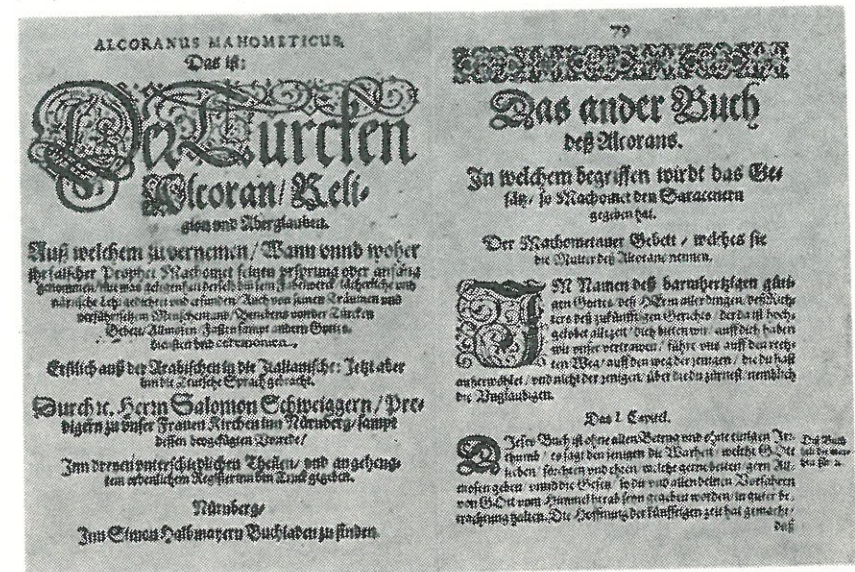 ALCORANUS MAHOMETICUS,
Das ist:
Der Türcken
Alcoran/ Reli-
gion vnd Aberglauben.
Auß welchem zuvernemen/ Wann vnnd woher
ihr falscher Prophet Machomet seinen vrsprung oder anfang
genommen/ mit was gelegenheit derselb diß sein Fabelwerck/ lächerliche vnd
närrische Lehr gedichtet vnd erfunden/ Auch von seinen Träumen vnd
verführischem Menschentant/ Benebens von der Türcken
Gebett/ Allmosen/ Fasten/ sampt andern Gottes-
diensten vnd ceremonien.
Erstlich auß der Arabischen in die Italianische: Jetzt aber
inn die Teutsche Sprach gebracht.
Durch ꝛc. Herrn Salomon Schweiggern/ Pre-
digern zu vnser Frauen Kirchen inn Nürnberg/ sampt
dessen beygefügten Vorrede/
Inn dreyen vnterschiedlichen Theilen/ vnd angeheng-
tem ordenlichem Register inn den Truck gegeben.
Nürnberg/
Inn Simon Halbmayern Buchladen zu finden.
79
Das ander Buch
deß Alcorans.
In welchem begriffen wirdt das Ge-
sätz/ so Machomet den Saracenern
gegeben hat.
Der Machometaner Gebett/ welches sie
die Mutter deß Alcorans nennen.
IM Namen deß barmhertzigen güti-
gen Gottes/ deß HErrn aller dingen/ deß Rich-
ters deß zukünfftigen Gerichts/ der da ist hoch-
gelobet allezeit/ dich bitten wir/ auff dich haben
wir vnser vertrawen/ führe vns auff den rech-
ten Weg/ auff den weg der jenigen/ die du hast
außerwöhlet/ vnd nicht der jenigen/ über die du zürnest/ nemblich
die Vnglaubigen.
Das I. Capitel.
Dieses Buch ist ohne allen Betrug vnd ohne einigen Irr-
thumb/ es sagt den jenigen die Warheit/ welche GOtt
lieben/ förchten vnd ehren/ welche gerne betten/ gern All-
mosen geben/ vnnd die Gesetz/ so dir vnd allen deinen Vorfahren
von GOtt vom Himmel herab seyn gegeben worden/ in guter be-
trachtung halten. Die Hoffnung der künfftigen zeit hat gemacht/
daß
Diß Buch